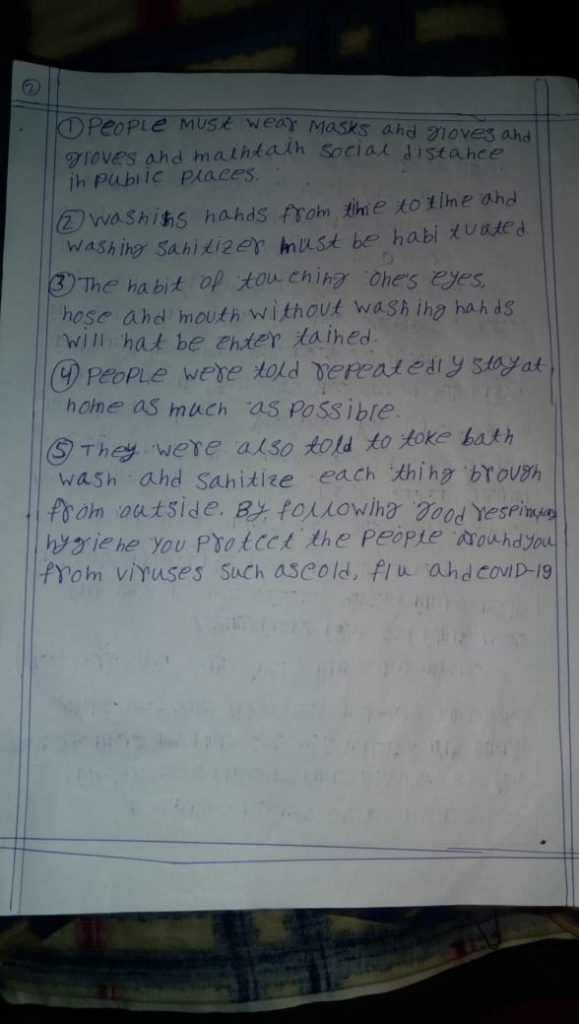 ②
① People must wear masks and gloves and
gloves and maintain social distance
in public places.
② washing hands from time to time and
washing sanitizer must be habi tuated.
③ The habit of touching one's eyes,
nose and mouth without washing hands
will nat be enter tained.
④ People were told repeatedly stay at
home as much as possible.
⑤ They were also told to toke bath
wash and sanitize each thing brough
from outside. By following good respiratory
hygiene you protect the people around you
from viruses such as cold, flu and covID-19